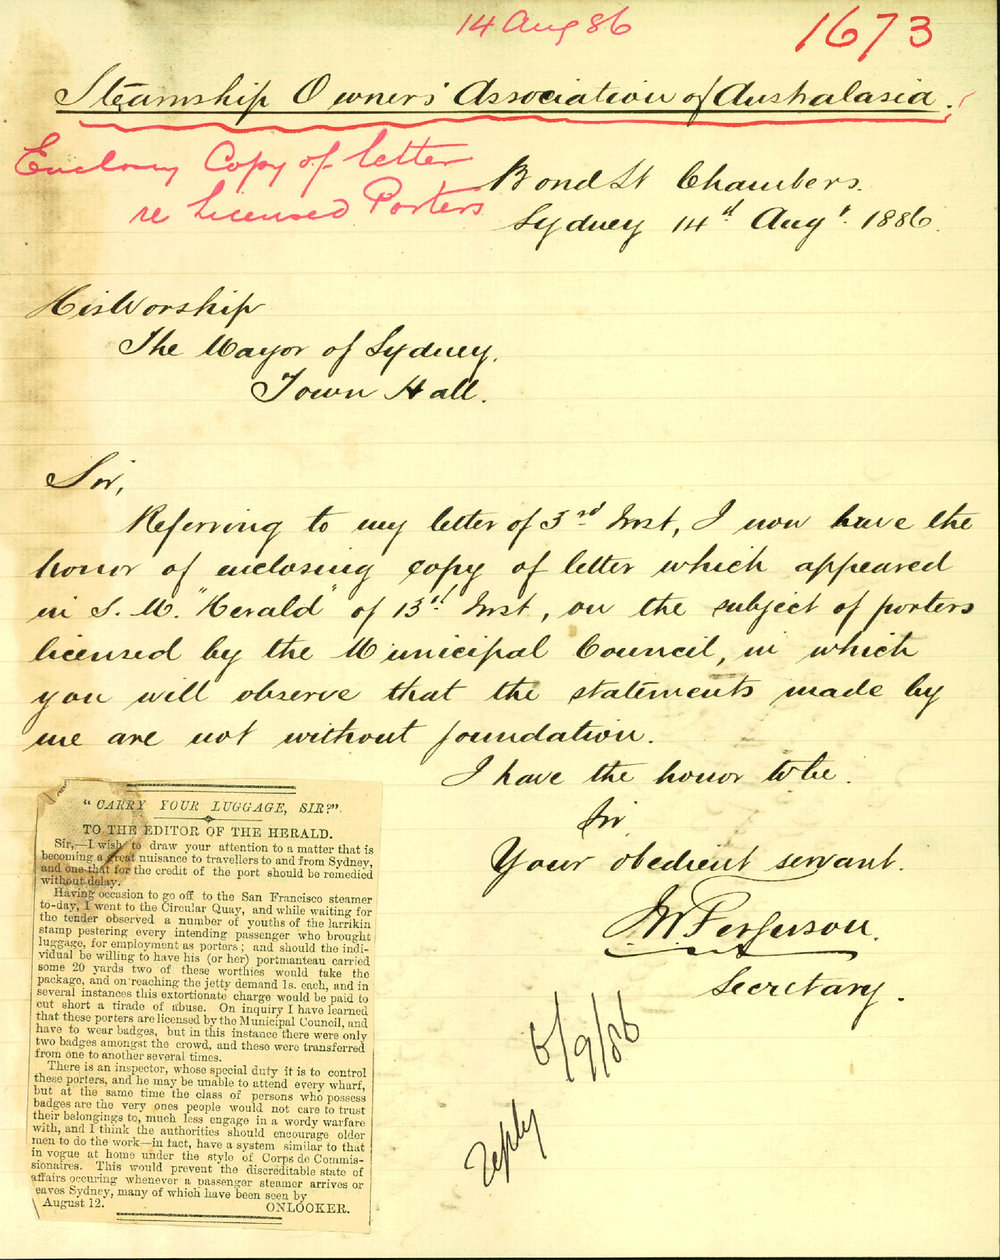 14 Aug 86
1673
Steamship Owners' Association of Australasia.
Enclosing Copy of letter
re Licensed Porters
Bond St Chambers.
Sydney 14th Augt. 1886.
His Worship
The Mayor of Sydney.
Town Hall.
Sir,
Referring to my letter of 3rd Inst, I now have the
honor of enclosing copy of letter which appeared
in S. M. "Herald" of 13th Inst, on the subject of porters
licensed by the Municipal Council, in which
you will observe that the statements made by
me are not without foundation.
I have the honor to be.
Sir
Your obedient servant.
Ferguson.
Secretary.
6/9/86
reply
"CARRY YOUR LUGGAGE, SIR?"
TO THE EDITOR OF THE HERALD.
Sir,—I wish to draw your attention to a matter that is
becoming a great nuisance to travellers to and from Sydney,
and one that for the credit of the port should be remedied
without delay.
Having occasion to go off to the San Francisco steamer
to-day, I went to the Circular Quay, and while waiting for
the tender observed a number of youths of the larrikin
stamp pestering every intending passenger who brought
luggage, for employment as porters; and should the indi-
vidual be willing to have his (or her) portmanteau carried
some 20 yards two of these worthies would take the
package, and on reaching the jetty demand 1s. each, and in
several instances this extortionate charge would be paid to
cut short a tirade of abuse. On inquiry I have learned
that these porters are licensed by the Municipal Council, and
have to wear badges, but in this instance there were only
two badges amongst the crowd, and these were transferred
from one to another several times.
There is an inspector, whose special duty it is to control
these porters, and he may be unable to attend every wharf,
but at the same time the class of persons who possess
badges are the very ones people would not care to trust
their belongings to, much less engage in a wordy warfare
with, and I think the authorities should encourage older
men to do the work—in fact, have a system similar to that
in vogue at home under the style of Corps de Commis-
sionaires. This would prevent the discreditable state of
affairs occuring whenever a passenger steamer arrives or
eaves Sydney, many of which have been seen by
August 12. ONLOOKER.